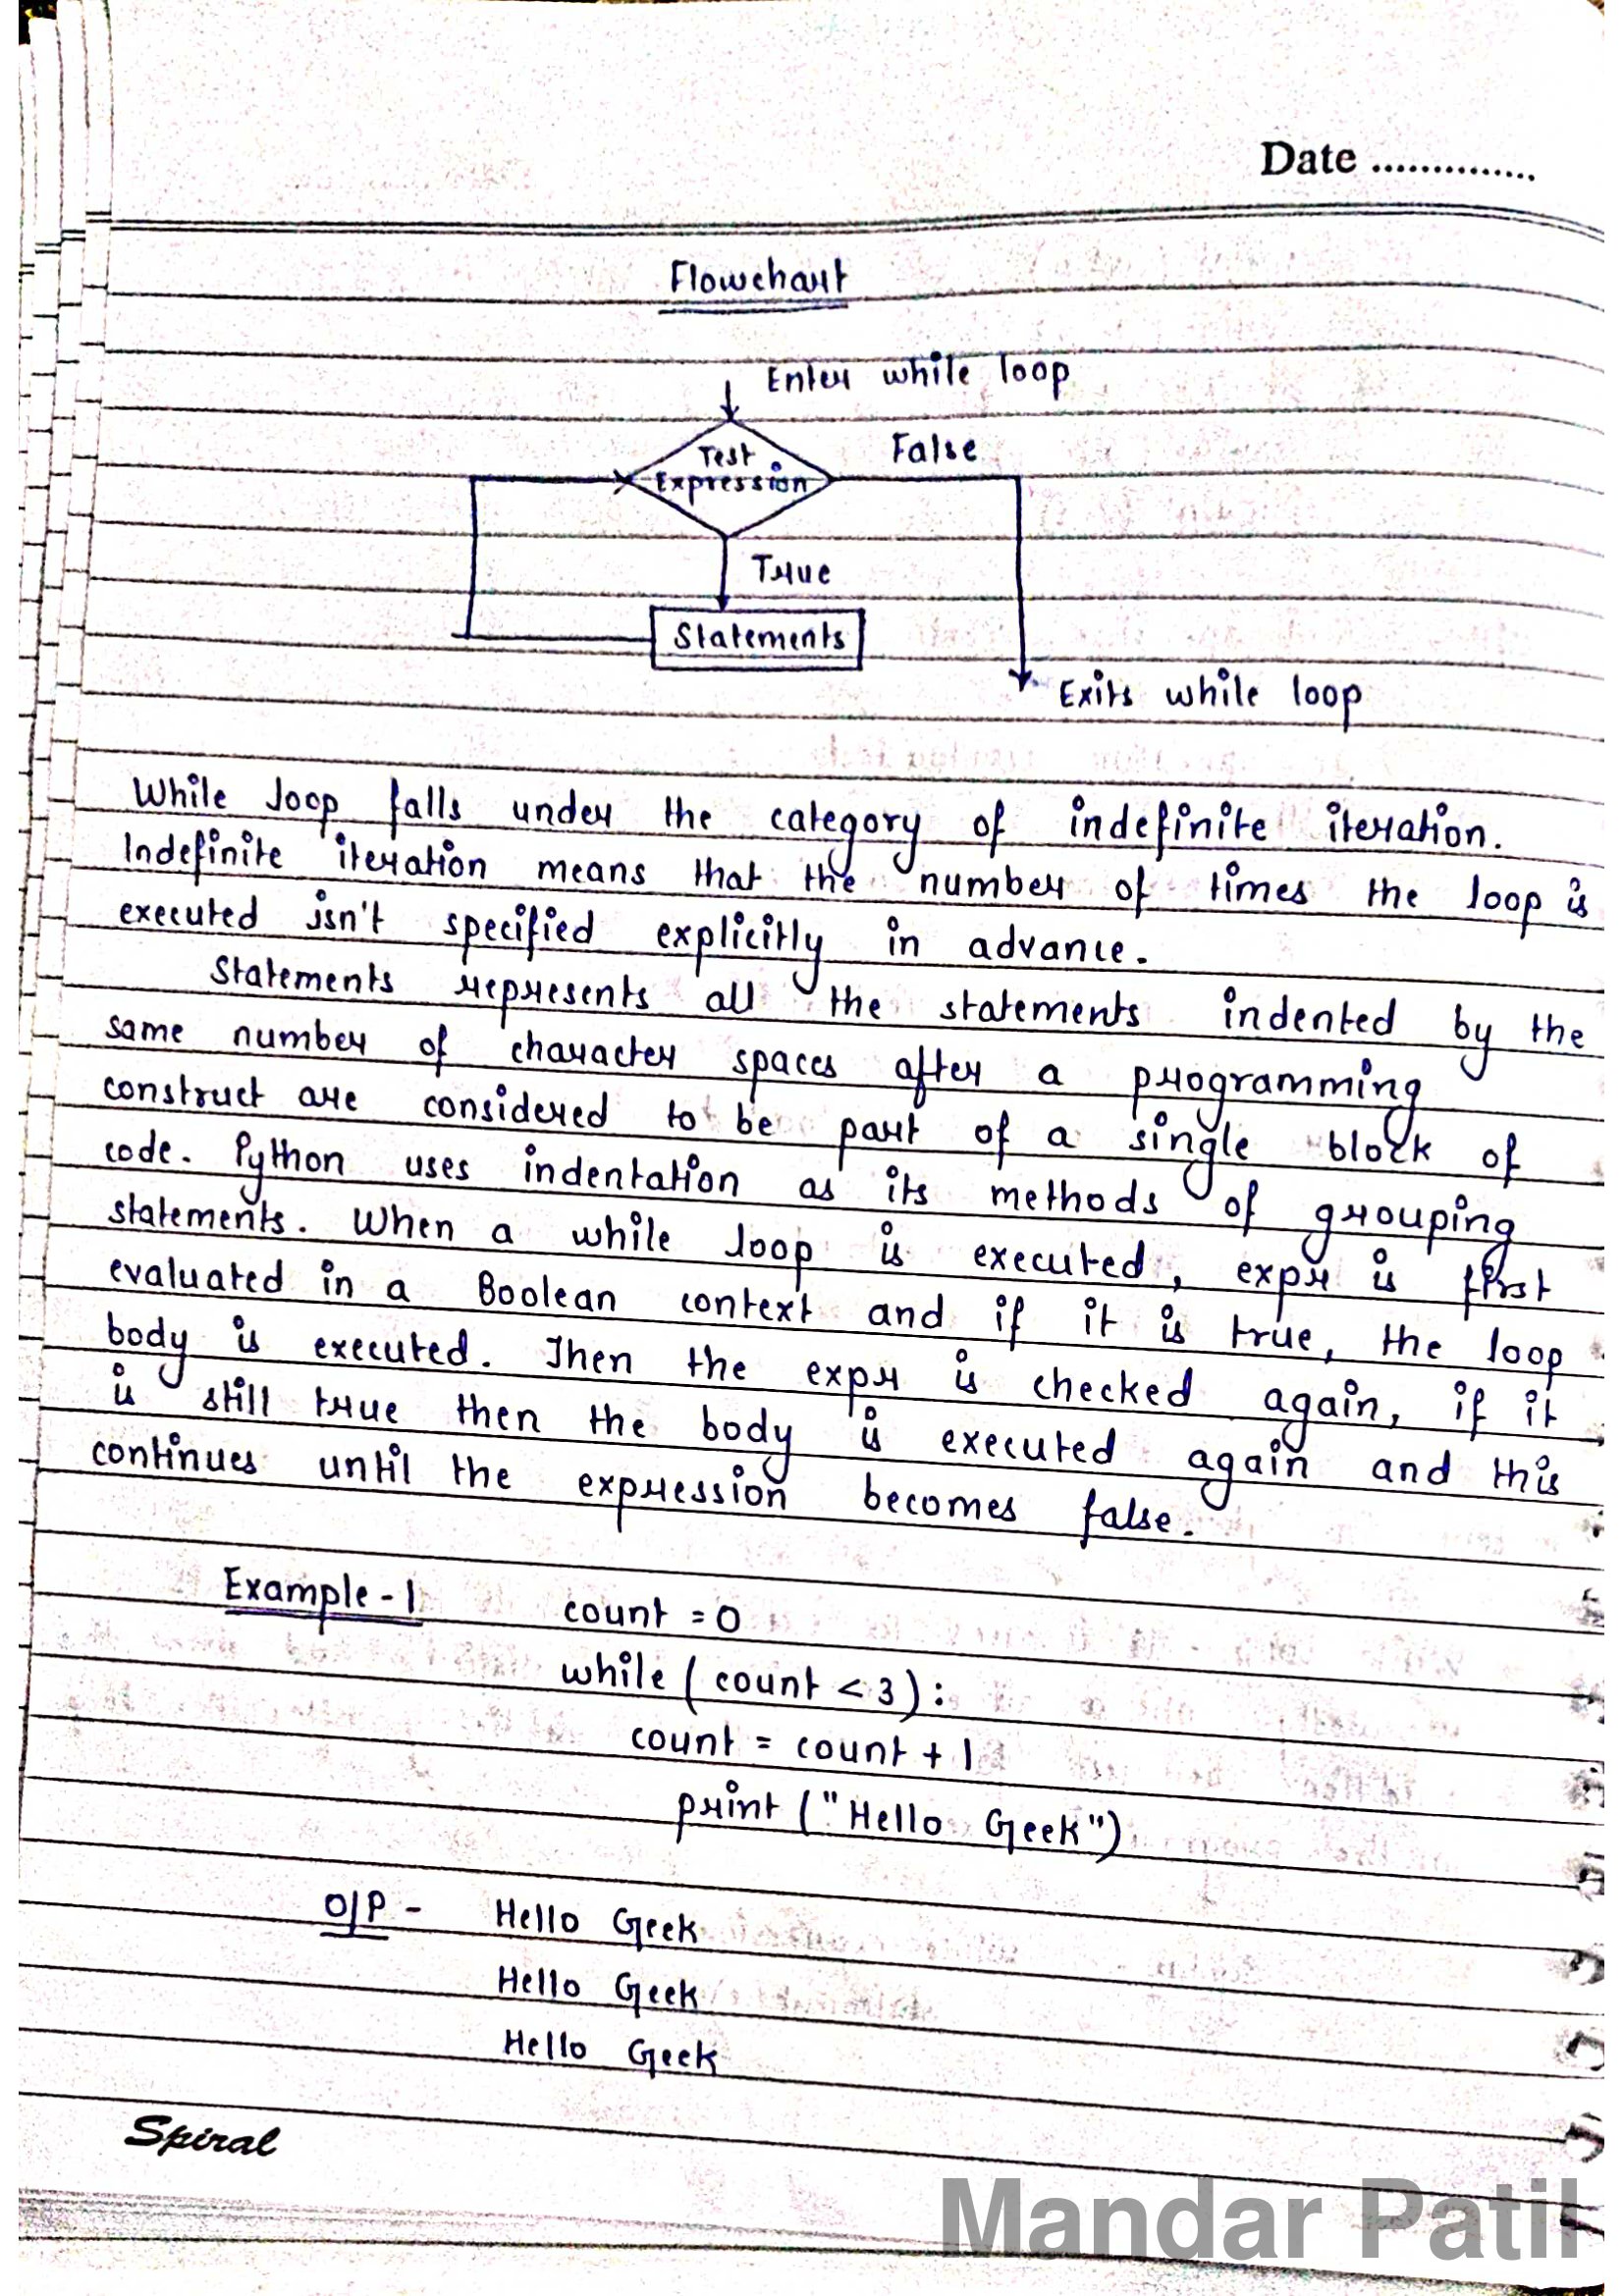 Date ..............
Flowchart
Enter while loop
Test
Expression
False
True
Statements
Exits while loop
While loop falls under the category of indefinite iteration.
Indefinite iteration means that the number of times the loop is
executed isn't specified explicitly in advance.
Statements represents all the statements indented by the
same number of character spaces after a programming
construct are considered to be part of a single block of
code. Python uses indentation as its methods of grouping
statements. When a while loop is executed, expr is first
evaluated in a Boolean context and if it is true, the loop
body is executed. Then the expr is checked again, if it
is still true then the body is executed again and this
continues until the expression becomes false.
Example-1 count = 0
while ( count < 3 ) :
count = count + 1
print ("Hello Geek")
O/P - Hello Geek
Hello Geek
Hello Geek
Spiral
Mandar Patil